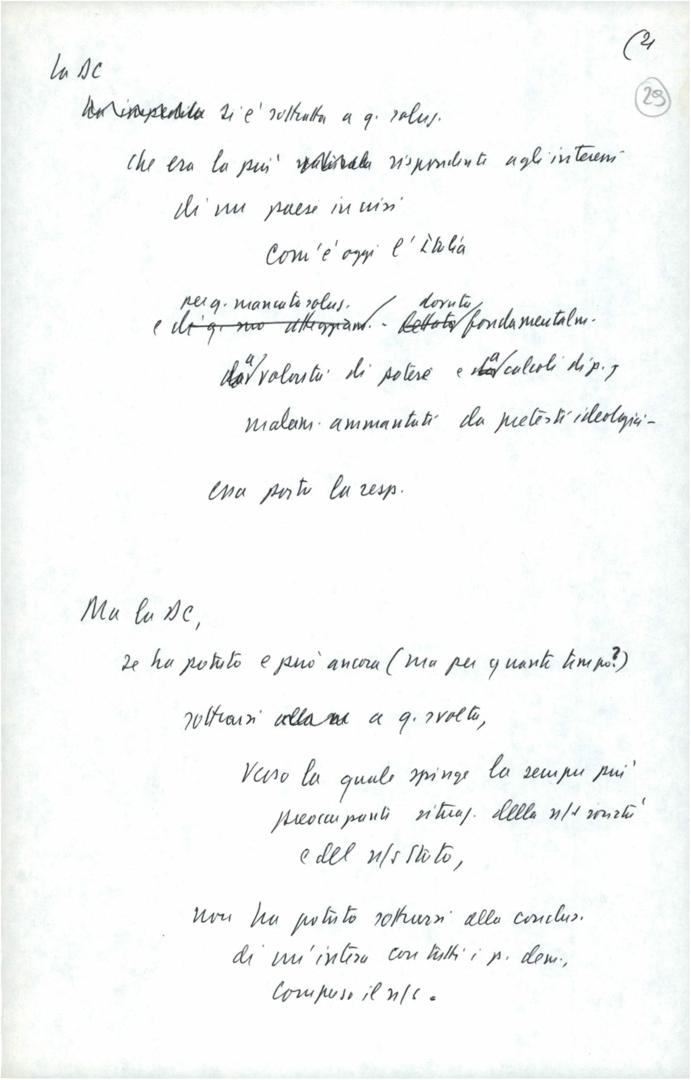 (2
29
La DC
ha impedito si è sottratta a q. solus.
che era la più valida rispondente agli interessi
di un paese in crisi
com'è oggi l'Italia
per q. mancata solus. dovuta
e di q. suo atteggiam. - dettato fondamentalm.
da a volontà di potere e da a calcoli di p.,
malam. ammantati da pretesti ideologici -
essa porta la resp.
Ma la DC,
se ha potuto e può ancora (ma per quanto tempo?)
sottrarsi alla a q. svolta,
verso la quale spinge la sempre più
preoccupante situaz. della n/s società
e del n/s Stato,
non ha potuto sottrarsi alla conclus.
di un'intesa con tutti i p. dem.,
compreso il n/s.